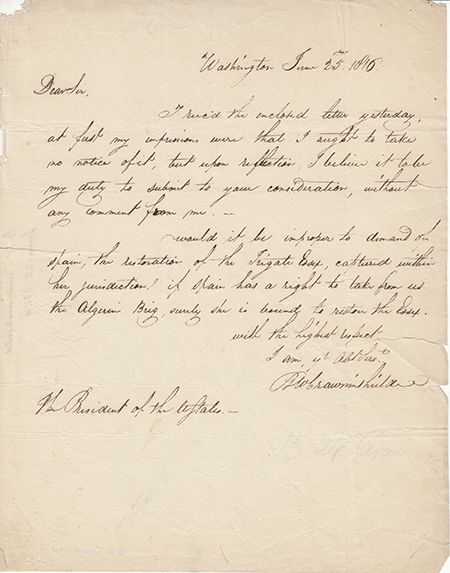 Washington June 25th 1816.
Dear Sir,
I rec'd the enclosed letter yesterday,
at first my impressions were that I ought to take
no notice of it, but upon reflection, I believe it to be
my duty to submit to your consideration, without
any comment from me. —
would it be improper to demand of
Spain, the restoration of the Frigate Essex, captured within
her jurisdiction? if Spain has a right to take from us
the Algerin Brig surely she is bound to restore the Essex.
with the highest respect
I am, yr Obt Servt
BWCrowninshield
The President of the UStates. —